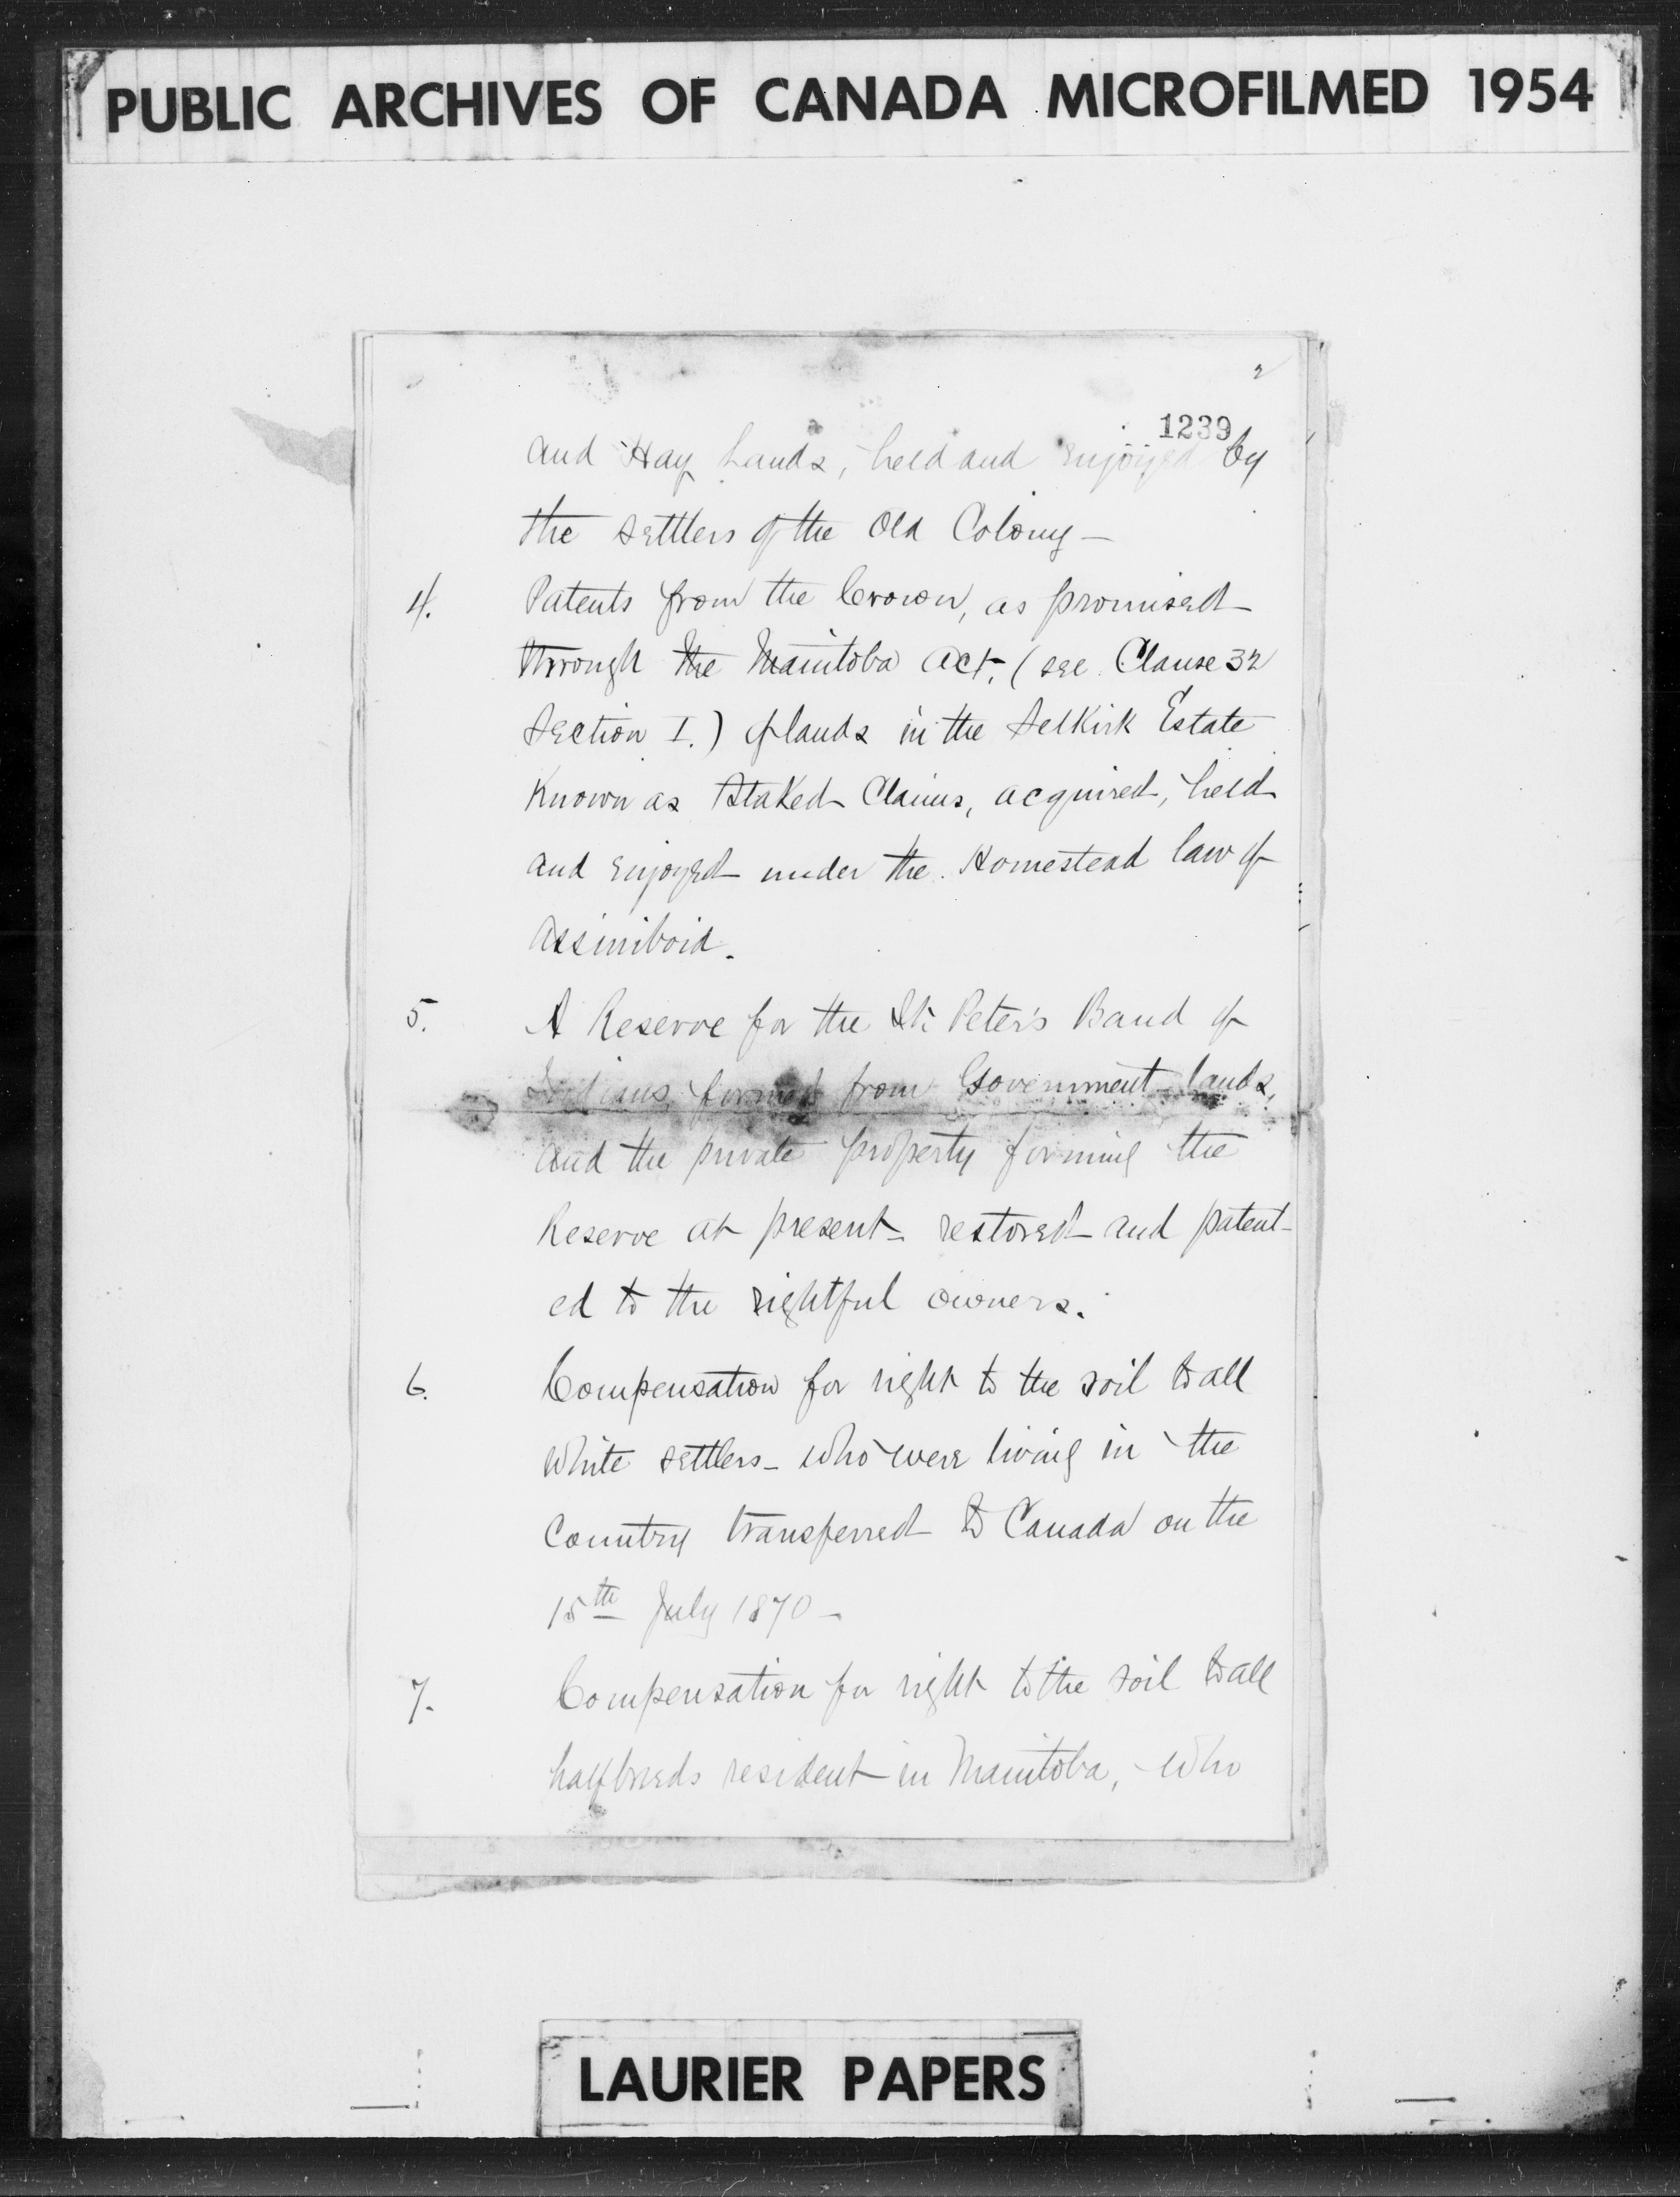 PUBLIC ARCHIVES OF CANADA MICROFILMED 1954
2
1239
and Hay Lands, held and enjoyed by
the settlers of the Old Colony—
4. Patents from the Crown, as promised
through the Manitoba Act, (see Clause 32
Section I.) of lands in the Selkirk Estate
Known as Staked Claims, acquired, held
and enjoyed under the Homestead law of
Assiniboia.
5. A Reserve for the St. Peter's Band of
Indians, formed from Government lands,
and the private property forming the
Reserve at present restored and patent-
ed to the rightful owners.
6. Compensation for right to the soil to all
White settlers who were living in the
Country transferred to Canada on the
15th July 1870—
7. Compensation for right to the soil to all
halfbreeds resident in Manitoba, who
LAURIER PAPERS